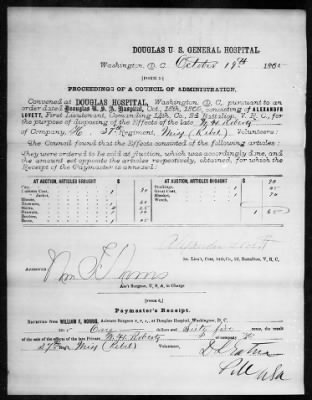 DOUGLAS U. S. GENERAL HOSPITAL.
Washington, D. C. October 19th 1865
PROCEEDINGS OF A COUNCIL OF ADMINISTRATION,
Convened at DOUGLAS HOSPITAL, Washington, D. C., pursuant to an
order dated Douglas U. S. A. Hospital, Oct. 18th, 1865, consisting of ALEXANDER
LOVETT, First Lieutenant, Commanding 14th Co., 2d Battalion, V. R. C., for
the purpose of disposing of the Effects of the late W. H. Roberts
of Company, "K" 37th Regiment, Miss (Rebel), Volunteers:
The Council found that the Effects consisted of the following articles:
They were ordered to be sold at Auction, which was accordingly done, and
the amount set opposite the articles respectively, obtained, for which the
Receipt of the Paymaster is annexed:
AT AUCTION, ARTICLES BROUGHT $
AT AUCTION, ARTICLES BROUGHT $
1 65
Alexander Lovett
1st Lieut., Com. 14th Co., 2d Battalion, V. R. C.
APPROVED:
Wm F Norris
Ass't Surgeon, U. S. A., in Charge
Paymaster's Receipt.
RECEIVED FROM WILLIAM F. NORRIS, Assistant Surgeon U. S. A., at Douglas Hospital, Washington, D. C.
One dollars and Sixty five cents, the result
of the sale of the effects of the late Private W. H. Roberts of company "K"
37th Miss (Rebel) Volunteers,
USA